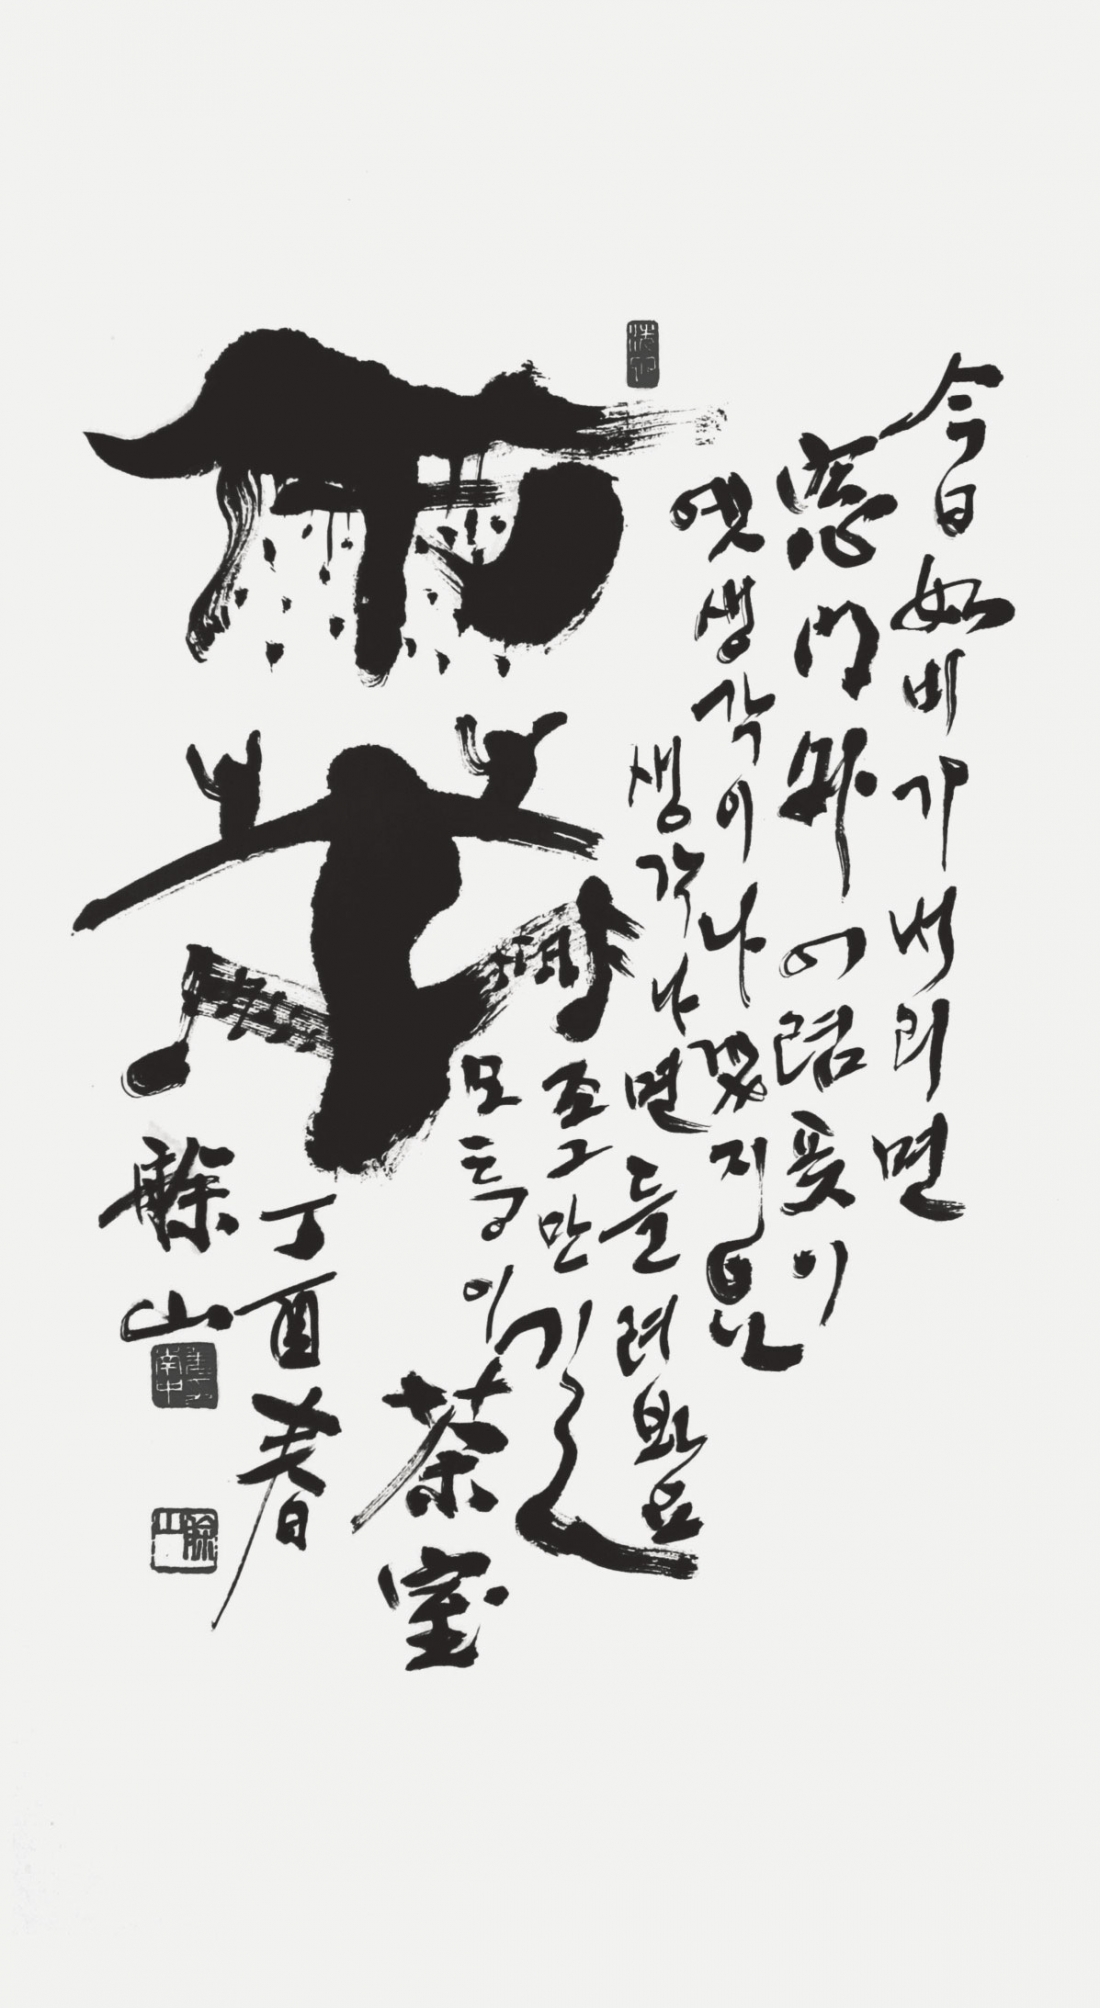 今日如비가내리면
窓門外어렴풋이
옛생각이나겠지요
생각나면들려봐요
조그만길
모퉁이茶室
雨茶
丁酉春
艅山